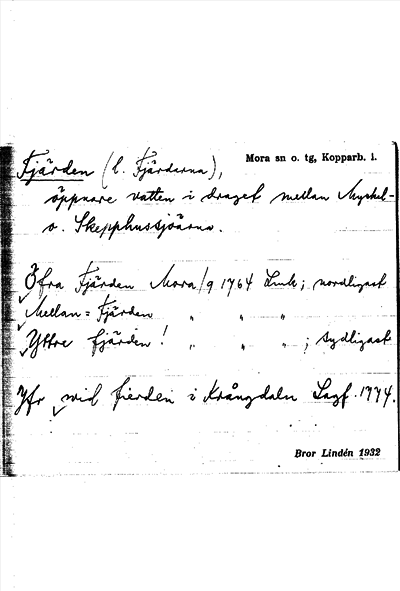 Mora sn o. tg, Kopparb. l.
Fjärden (l. Fjärdarna),
öppnare vatten i draget mellan Myckel-
o. Skepphussjöarna.
Öfra Fjärden Mora/g 1764 Lmk; nordligast
Mellan = Fjärden " " "
Yttre fjärden! " " " ; sydligast
Jfr wid fierden i Krångdaln Lagf. 1774.
Bror Lindén 1932